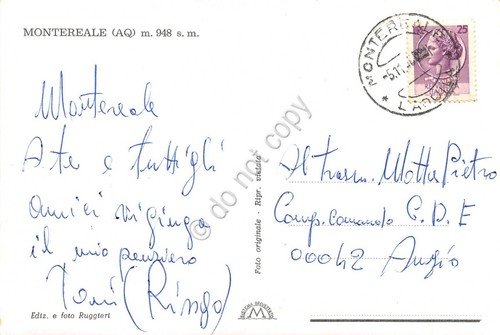 MONTEREALE (AQ) m. 948 s. m.
Montereale
A te e tutti gli
amici vi giunga
il mio pensiero
Toni (Ringo)
Ediz. e foto Ruggieri
Foto originale - Ripr. vietata
25
MONTEREALE
* L'AQUILA
Motta Pietro
Comp. Comando C. D. E
00042 Anzio
do not copy